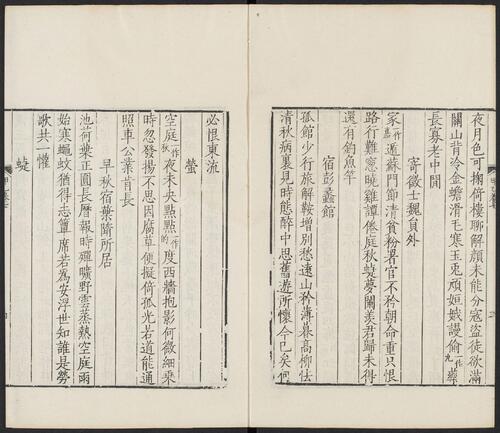 夜月色可掬倚樓聊解顏未能分寇盜徒欲滿
關山背冷金蟾滑毛寒玉兎頑姮娥謾偷一作九藥
長寡老中閒
寄徵士魏員外
家一作遁蘇門節清貧粉署官不矜朝命重只恨
路行難窓曉雞譚倦庭秋蛬夢闌羨君歸未得
還有釣魚竿
宿彭蠡館
孤館少行旅解鞍增別愁遠山矜薄暮高柳怯
清秋病裏見時態醉中思舊遊所懷今已矣何
必恨東流
螢
空庭一作秋夜未央點點一作的度西牆抱影何微細乘
時忽發揚不思因腐草便擬倚孤光若道能通
照車公業肯長
早秋宿葉墮所居
池荷葉正圓長曆報時殫曠野雲蒸熱空庭雨
始寒蠅蚊猶得志簟席若為安浮世知誰是勞
歌共一懽
蛬